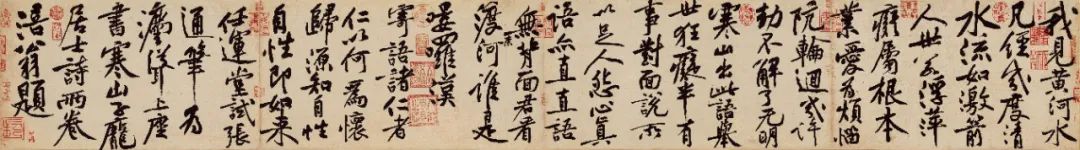 我見黄河水
凡經幾度清
水流如激箭
人世若浮萍
癡屬根本
業愛為煩惱
阬輪迴幾許
劫不解了无明
寒山出此語舉
世狂癡半有
事對面說所
以足人怨心真
語亦直直語
無背面君看
渡奈河誰是
嘍羅漢
寄語諸仁者
仁以何為懷
歸源知自性
自性即如来
任運堂試張
通筆為
灋聳上座
書寒山子龐
居士詩兩卷
涪翁題